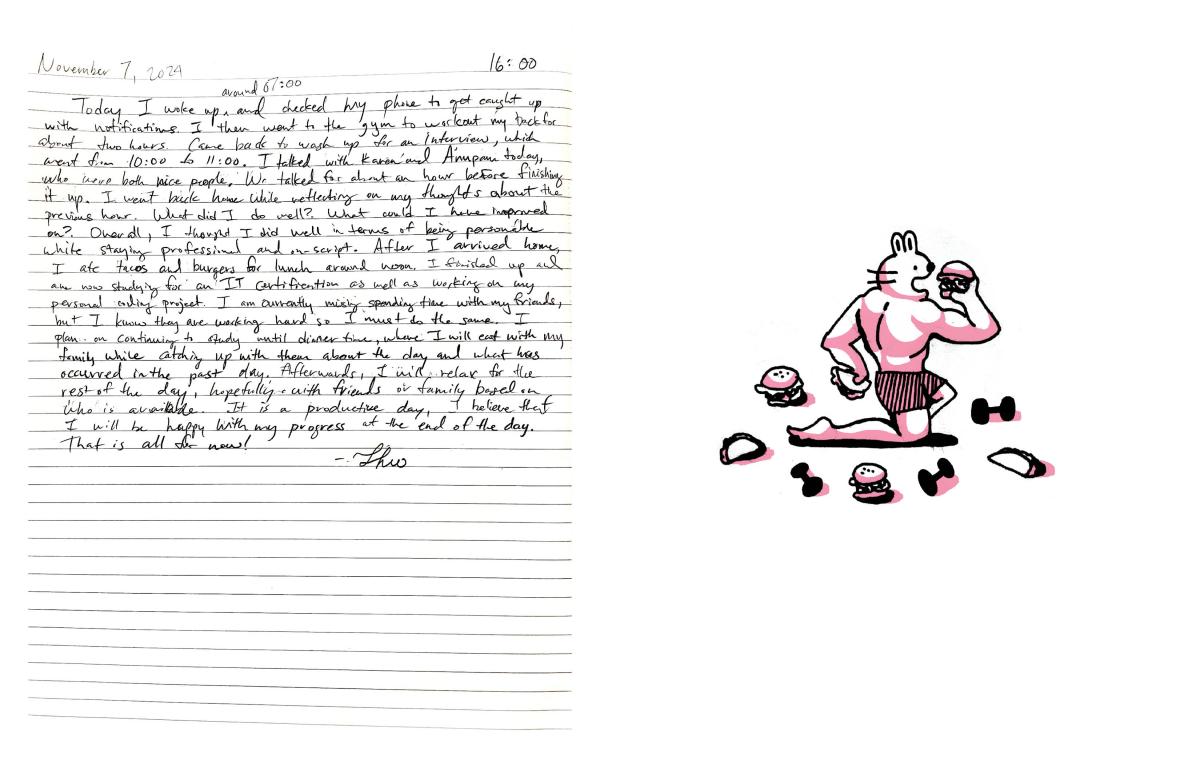 November 7, 2024 16:00
around 07:00
Today I woke up, and checked my phone to get caught up
with notifications. I then went to the gym to workout my back for
about two hours. Came back to wash up for an Interview, which
went from 10:00 to 11:00. I talked with Karen and Anupam today,
who were both nice people. We talked for about an hour before finishing
it up. I went back home while reflecting on my thoughts about the
previous hour. What did I do well? What could I have improved
on? Overall, I thought I did well in terms of being personable
while staying professional and on-script. After I arrived home,
I ate tacos and burgers for lunch around noon. I finished up and
am now studying for an IT Certification as well as working on my
personal coding project. I am currently missing spending time with my friends,
but I know they are working hard so I must do the same. I
plan on continuing to study until dinner time, where I will eat with my
family while catching up with them about the day and what has
occurred in the past day. Afterwards, I will relax for the
rest of the day, hopefully with friends or family based on
who is available. It is a productive day, I believe that
I will be happy with my progress at the end of the day.
That is all for now!